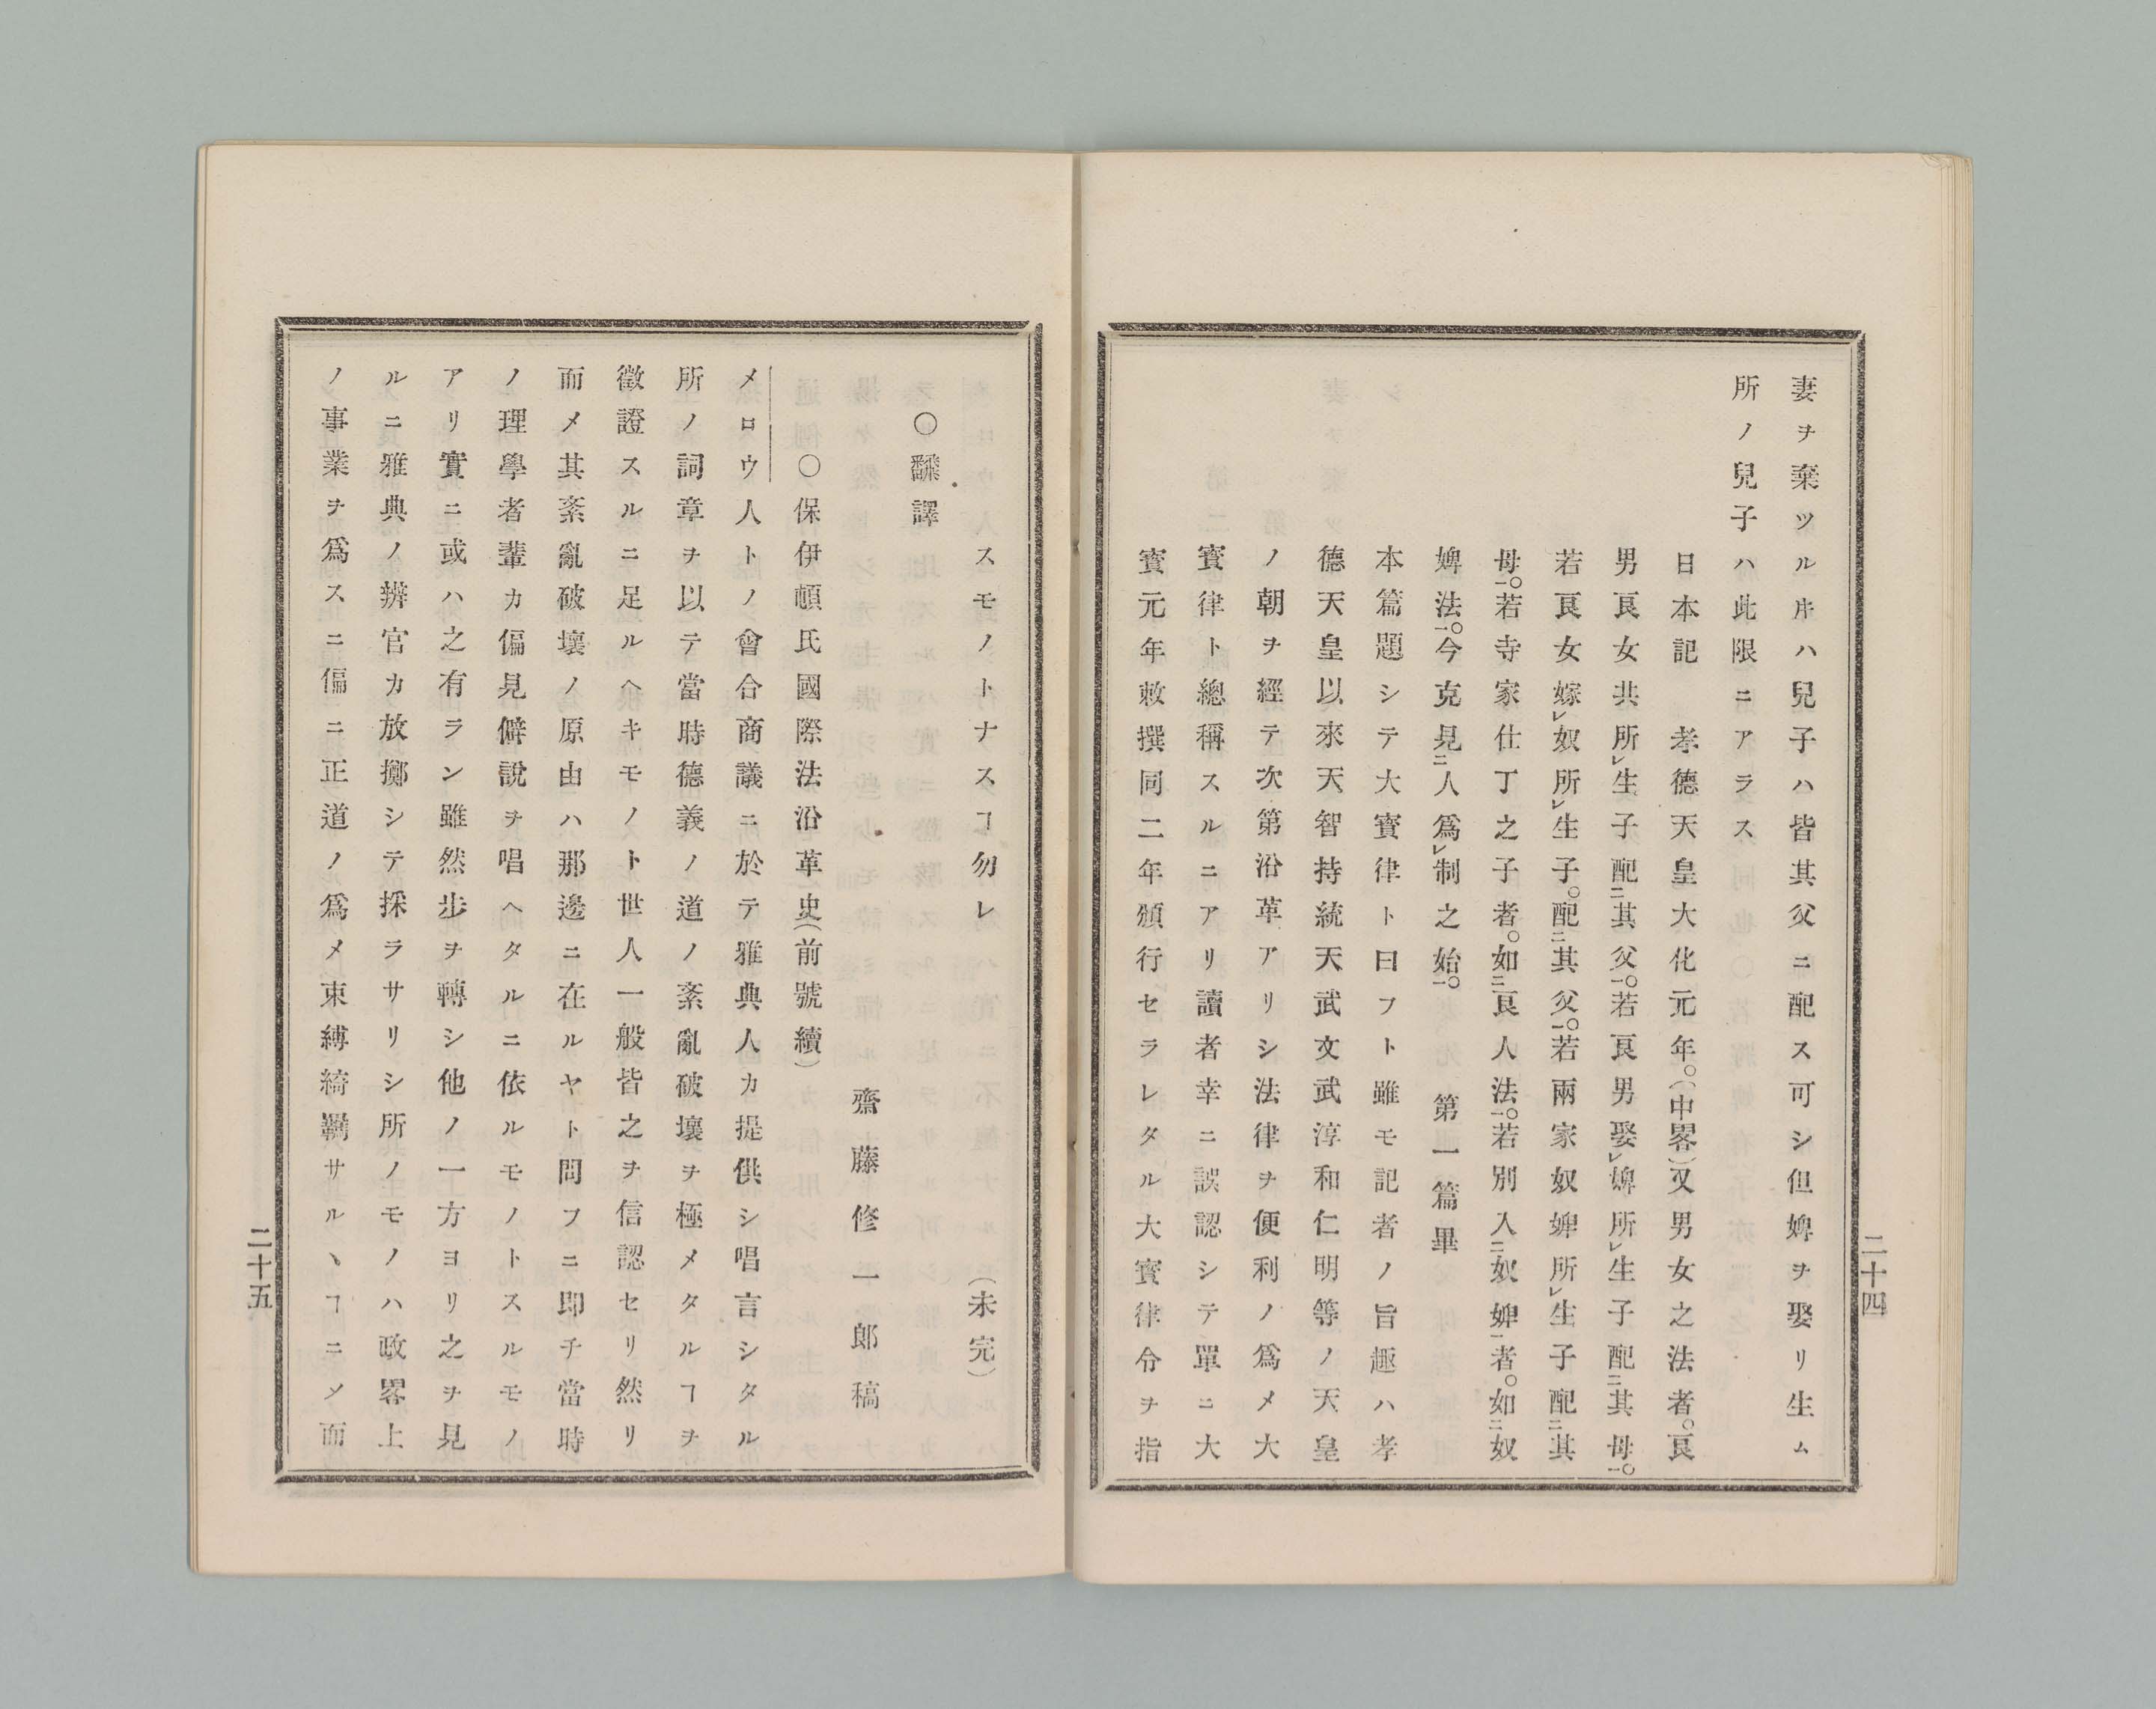 妻ヲ棄ツル𪜈ハ兒子ハ皆其父ニ配ス可シ但婢ヲ娶リ生ム
所ノ兒子ハ此限ニアラス
日本記　孝德天皇大化元年。(中畧)又男女之法者。良
男良女共所レ生子配二其父一。若良男娶レ婢所レ生子配二其母一。
若良女嫁レ奴所レ生子。配二其父一。若兩家奴婢所レ生子配二其
母一。若寺家仕丁之子者。如二良人法一。若別入二奴婢一者。如二奴
婢法一。今克見二人爲レ制之始一。　第一篇畢
本篇題シテ大寳律ト曰フト雖モ記者ノ旨趣ハ孝
德天皇以來天智持統天武文武淳和仁明等ノ天皇
ノ朝ヲ經テ次第沿革アリシ法律ヲ便利ノ爲メ大
寳律ト總稱スルニアリ讀者幸ニ誤認シテ單ニ大
寳元年敕撰同二年頒行セラレタル大寳律令ヲ指
二十四
スモノトナスヿ勿レ　（未完）
○飜譯
齋藤修一郎稿
○保伊頓氏國際法沿革史(前號續)
メロウ人トノ會合商議ニ於テ雅典人カ提供シ唱言シタル
所ノ詞章ヲ以テ當時德義ノ道ノ紊亂破壞ヲ極メタルヿヲ
徵證スルニ足ルヘキモノト世人一般皆之ヲ信認セリ然リ
而メ其紊亂破壞ノ原由ハ那邊ニ在ルヤト問フニ即チ當時
ノ理學者輩カ偏見僻說ヲ唱ヘタルニ依ルモノトスルモノ
アリ實ニ或ハ之有ラン雖然步ヲ轉シ他ノ一方ヨリ之ヲ見
ルニ雅典ノ辨官カ放擲シテ採ラサリシ所ノモノハ政畧上
ノ事業ヲ爲スニ偏ニ正道ノ爲メ束縛綺羈サルヽヿニメ而
二十五